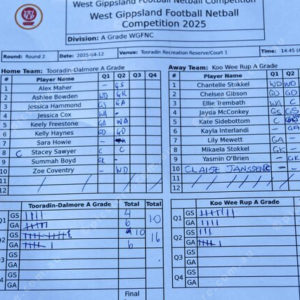 West Gippsland Football Netball Competition
West Gippsland Football Netball
Competition 2025
Division: A Grade WGFNC
Round: Round 2 Date: 2025-04-12 Venue: Tooradin Recreation Reserve/Court 1 Time: 14:45
Home Team: Tooradin-Dalmore A Grade
# Player Name Q1 Q2 Q3 Q4
1 Alex Maher - GS
2 Ashlee Bowden WD GK
3 Jessica Hammond GS GA
4 Jessica Cox WA -
5 Keely Freestone GA WA
6 Kelly Haynes GD GD
7 Sara Howie - -
8 C Stacey Sawyer C C
9 Summah Boyd
10 Zoe Coventry - WD
11
12
Away Team: Koo Wee Rup A Grade
# Player Name Q1 Q2
1 Chantelle Stickell WD WD
2 Chelsea Gibson GD GD
3 Ellie Trembath WA C
4 Jayda McConkey GS
5 Kate Sidebottom
6 Kayla Interlandi -
7 Lily Mewett GA -
8 Mikaela Stokell GK -
9 Yasmin O'Brien - GK
10 CLAISE JANSSENS
11
12
Tooradin-Dalmore A Grade Total Total
Q1 GS 4 10
GA 6
Q2 GS 10 16
GA 6
Q3 GS
GA
Q4 GS
GA
Final
Koo Wee Rup A Grade
Q1 GS
GA
Q2 GS
GA
Q3 GS
GA
Q4 GS
GA